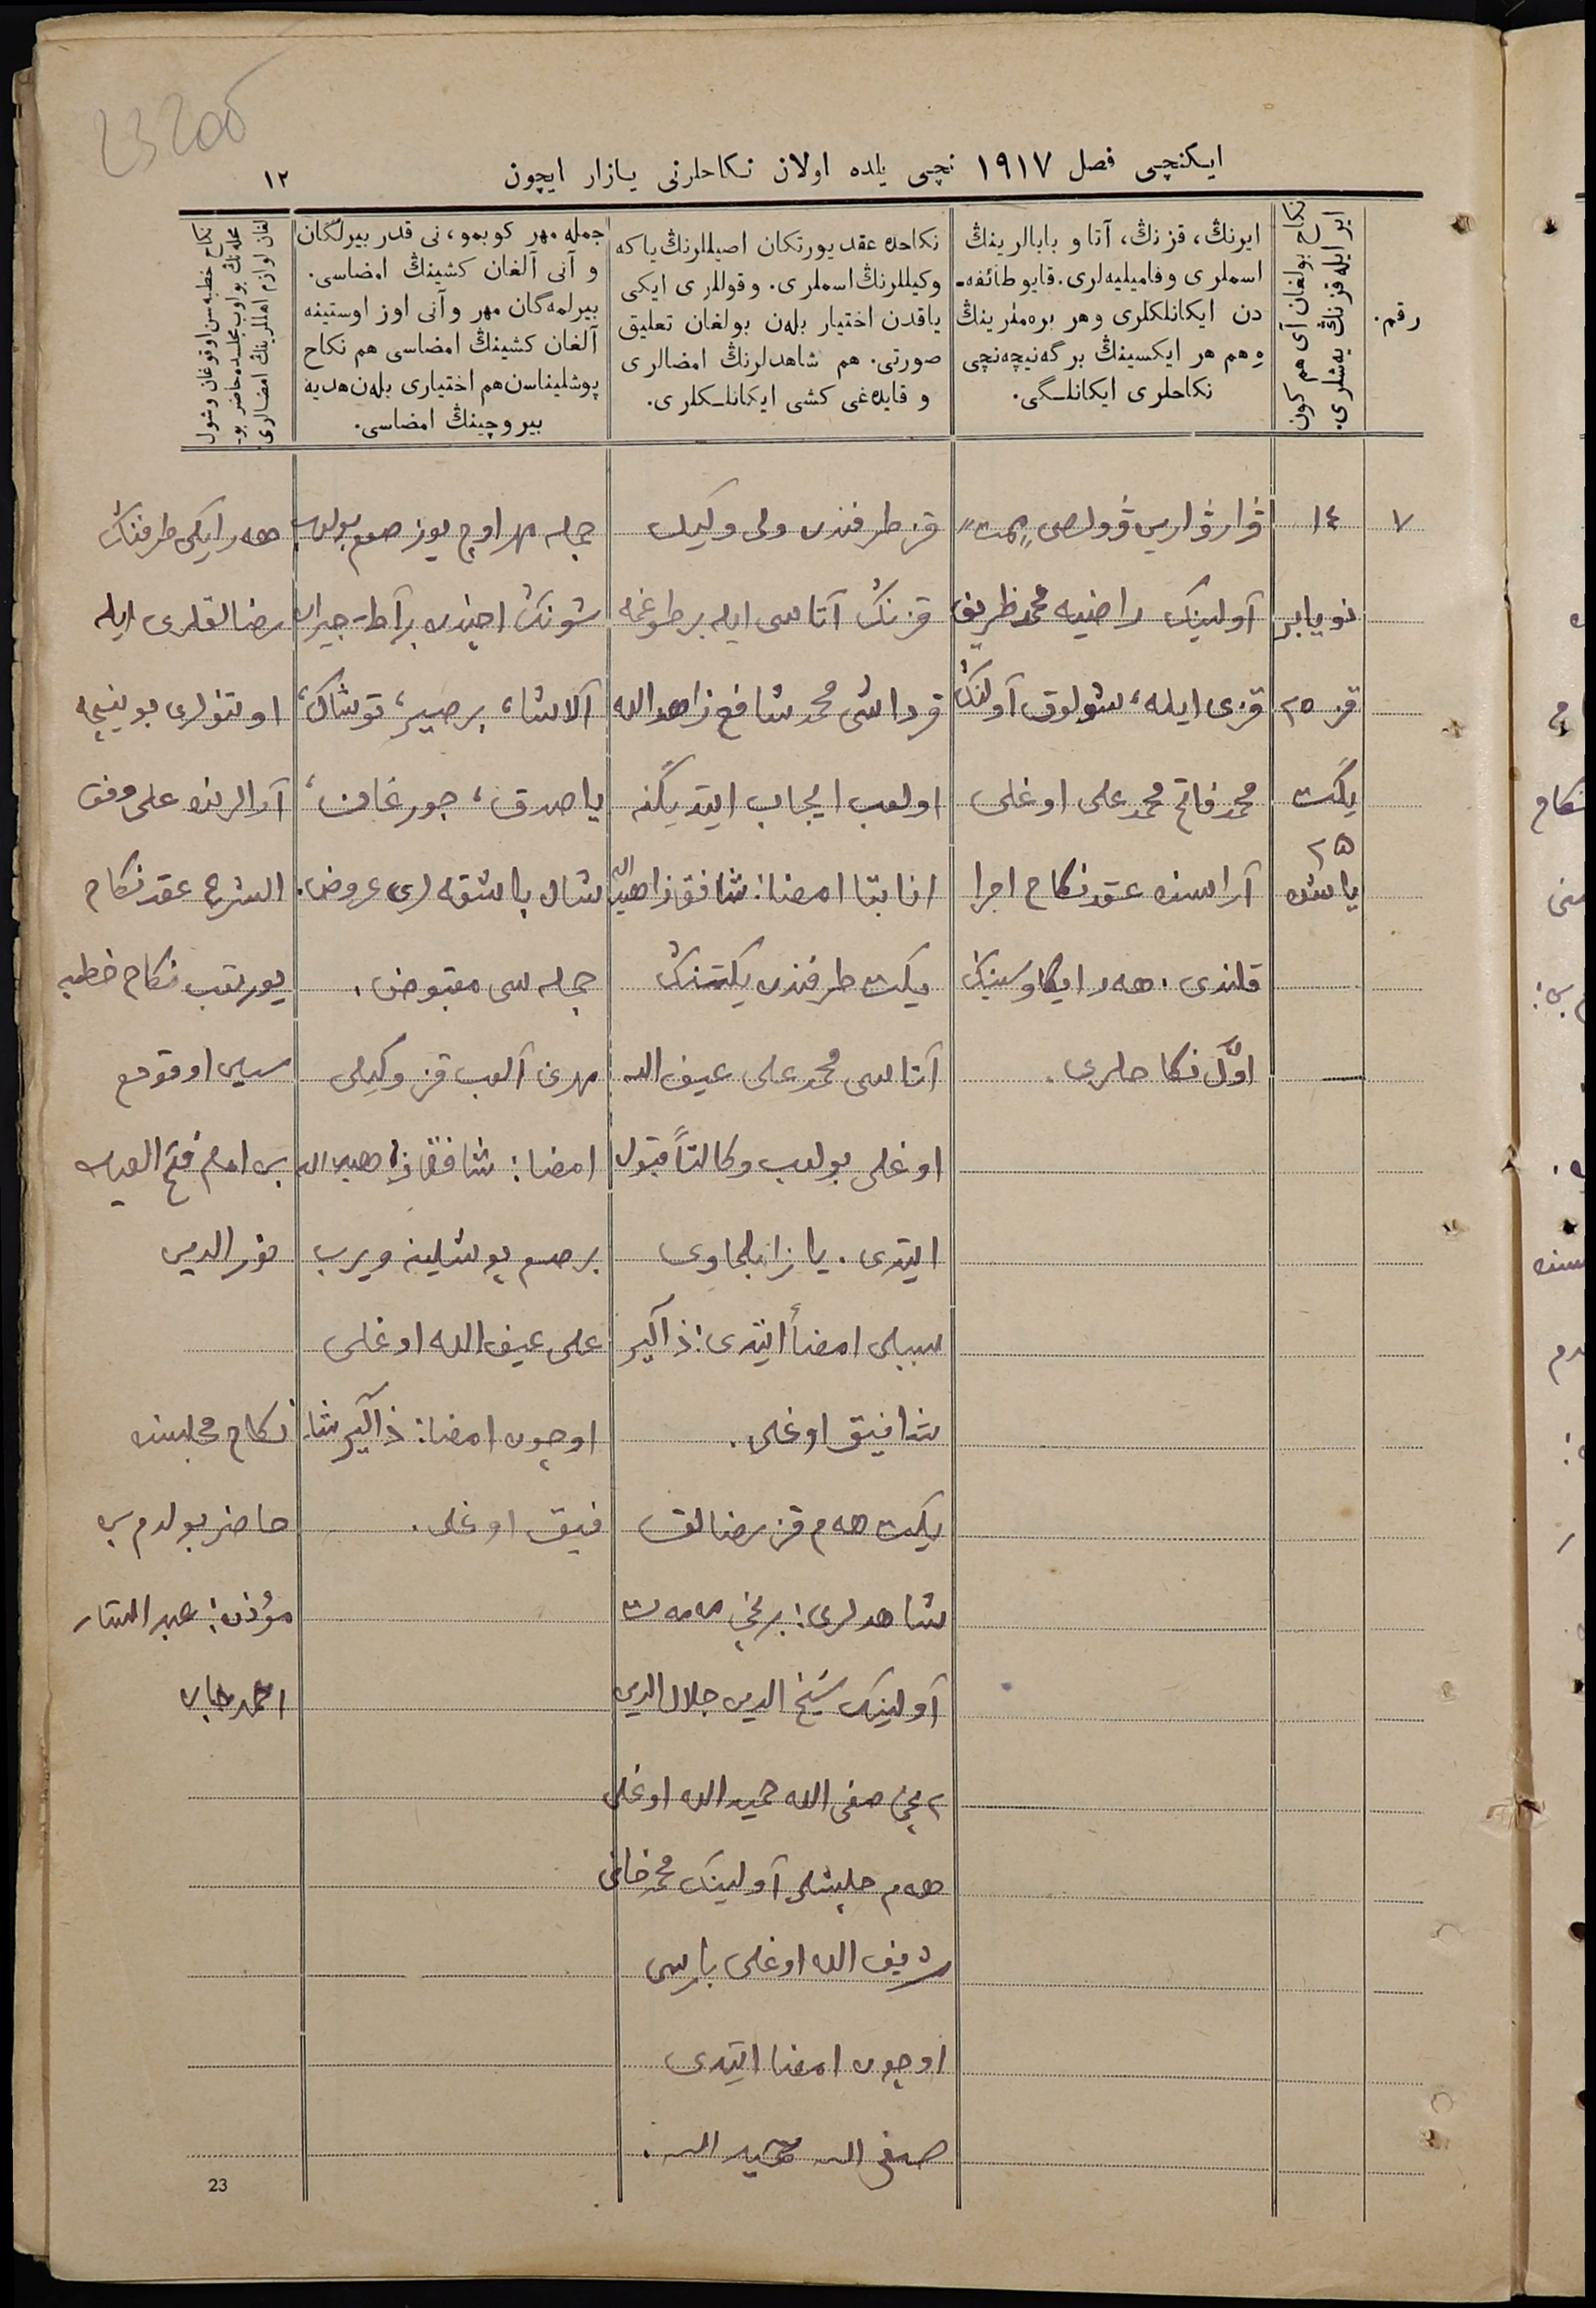 23 об
ایکنچی فصل ١٩١٧ نچی یلده اولان نکاحلرنی یازار ایچون
١٢
رقم.
نکاح بولغان آی هم کون
ایر ایله قزنڭ یەشلری.
ایرنڭ، قزنڭ، آتا و بابالرینڭ
اسملری وفامیلیەلری. قایو طائفه‌ـ
دن ایکانلکلری وهر برەملرینڭ
وهم هر ایکسینڭ برگه‌نیچه‌نچی
نکاحلری ایکانلـگی.
نکاحده عقد یورتکان اصیللرنڭ یا که
وکیللرنڭ اسملری. وقوللری ایکی
یاقدن اختیار بلەن بولغان تعلیق
صورتی. هم شاهدلرنڭ امضالری
و قایداغی کشی ایکانلـکلری.
جمله مهر کوبمو، نی قدر بیرلگان
و آنی آلغان کشینڭ امضاسی.
بیرلمەگان مهر وآنی اوز اوستینه
آلغان کشینڭ امضاسی هم نکاح
پوشلیناسن هم اختیاری بلەن هدیه
بیروچینڭ امضاسی.
نکاح خطبه‌سن اوقوغان وشول
محله‌نڭ بولوب مجلسده حاضر بو‌ـ
لغان لوازم اهللرینڭ امضالری
٧
١٤
نویابر
قز ٢٥
یگت
٢٥
یاشده
آولینڭ راضیه محمدظریف
قزی ایله، شولوق آولنڭ
محمد فاتح محمد علی اوغلی
آراسنده عقد نکاح اجرا
قلندی. هەر ایکاوسینڭ
اوّل نکاحلری.
قز طرفندن ولی وکیل
قزنڭ آتاسی ایله برطوغمه
قرداشی محمد شافع زاهدالله
اولوب ایجاب ایتدیگنه
انابتا امضا: شافق زاهیدالله
یگت طرفندن یگتنڭ
آتاسی محمد علی عیف الله
اوغلی بولوب وکالتاً قبول
ایتدی. یازا بلماوی
سببلی امضأ ایتدی: ذاکیر
شافیق اوغلی.
یگت هەم قز رضالق
شاهدلری: برنچی
آولینڭ شیخ الدین جلال الدین
٢ نچی صفی الله حمیدالله اوغلی
هەم آولینڭ محمدخانی
شریف الله اوغلی بارسی
اوچون امضا ایتدی
صفی الله حمید الله.
جمله مهر اوچ یوز صوم بولوب
شونڭ اچندن برآط-جیران
آلاشا، برصیر، توشاك،
یاصدق، جورغان،
شال باشقه‌لری عروض.
جمله‌سی مقبوض.
مهرنی آلوب قز وکیلی
امضا: شافق زاهیدالله
برصوم پوشلینه ویرب
علی عیف الله اوغلی
اوچون امضا: ذاکیر شا-
فیق اوغلی.
هەر ایکی طرفنڭ
رضالقلری ایله
اوتنولری بوینچه
آرالرنده علی وفق
الشرع عقد نکاح
یورتب نکاح خطبه
سین اوقودم
بن امام فتح
نورالدین
نکاح مجلسنده
حاضر بولدم بن
مؤذن: عبدالستار
احمدجان
23